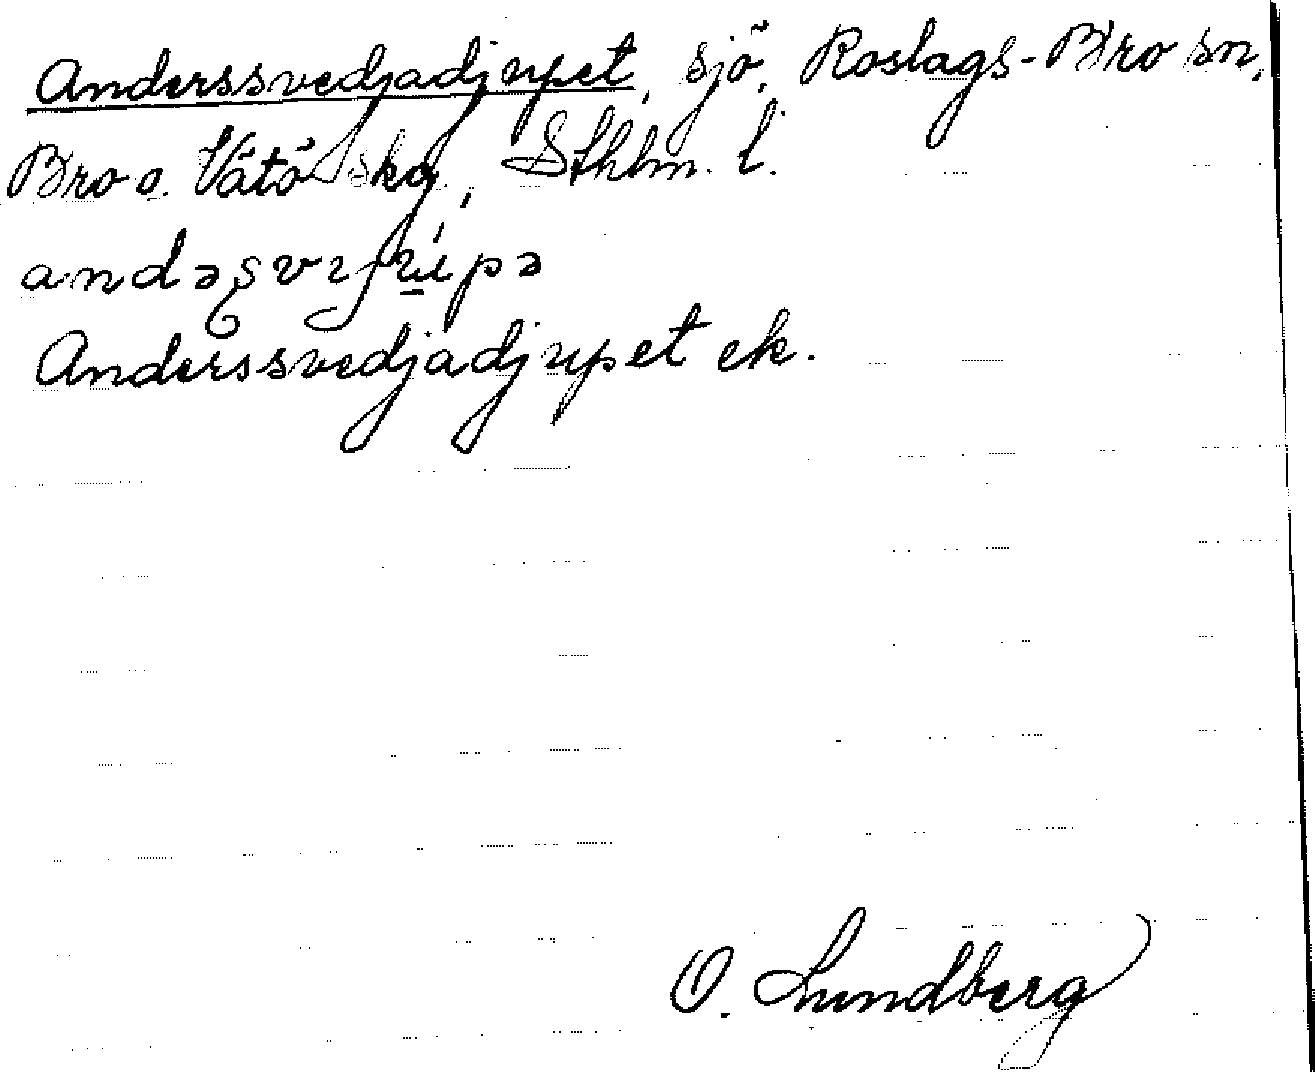 Anderssvedjadjupet, sjö, Roslags-Bro sn,
Bro o. Vätö skg, Sthlm. l.
Anderssvedjadjupet ek.
O. Lundberg